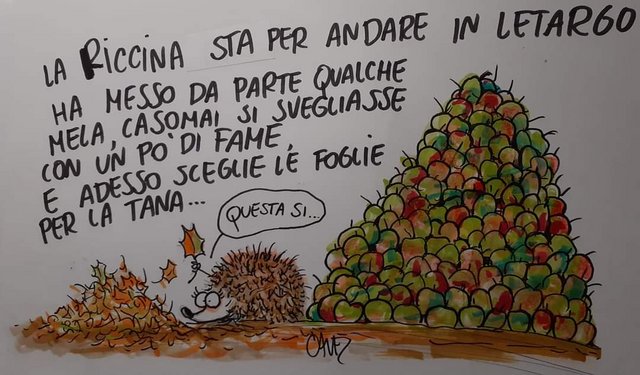 LA RICCINA STA PER ANDARE IN LETARGO
HA MESSO DA PARTE QUALCHE
MELA, CASOMAI SI SVEGLIASSE
CON UN PO' DI FAME,
E ADESSO SCEGLIE LE FOGLIE
PER LA TANA...
QUESTA SI...
CAVEZ